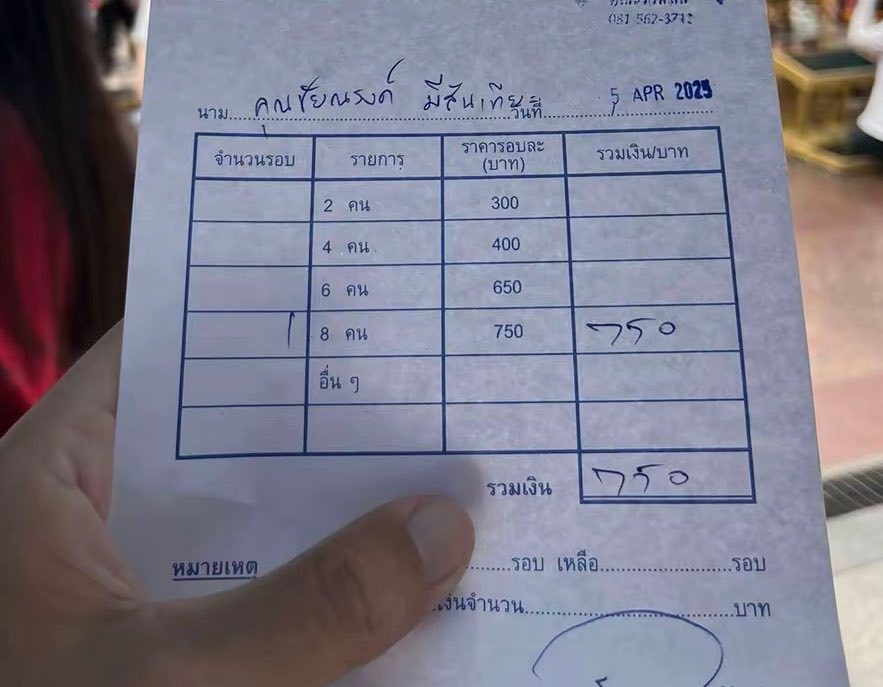 081 562-3712
นาม คุณชัยณรงค์ มีสันเทียะ วันที่ 5 APR 2025
จำนวนรอบ รายการ ราคารอบละ (บาท) รวมเงิน/บาท
2 คน 300
4 คน 400
6 คน 650
1 8 คน 750 750
อื่น ๆ
รวมเงิน 750
หมายเหตุ รอบ เหลือ รอบ
เงินจำนวน บาท